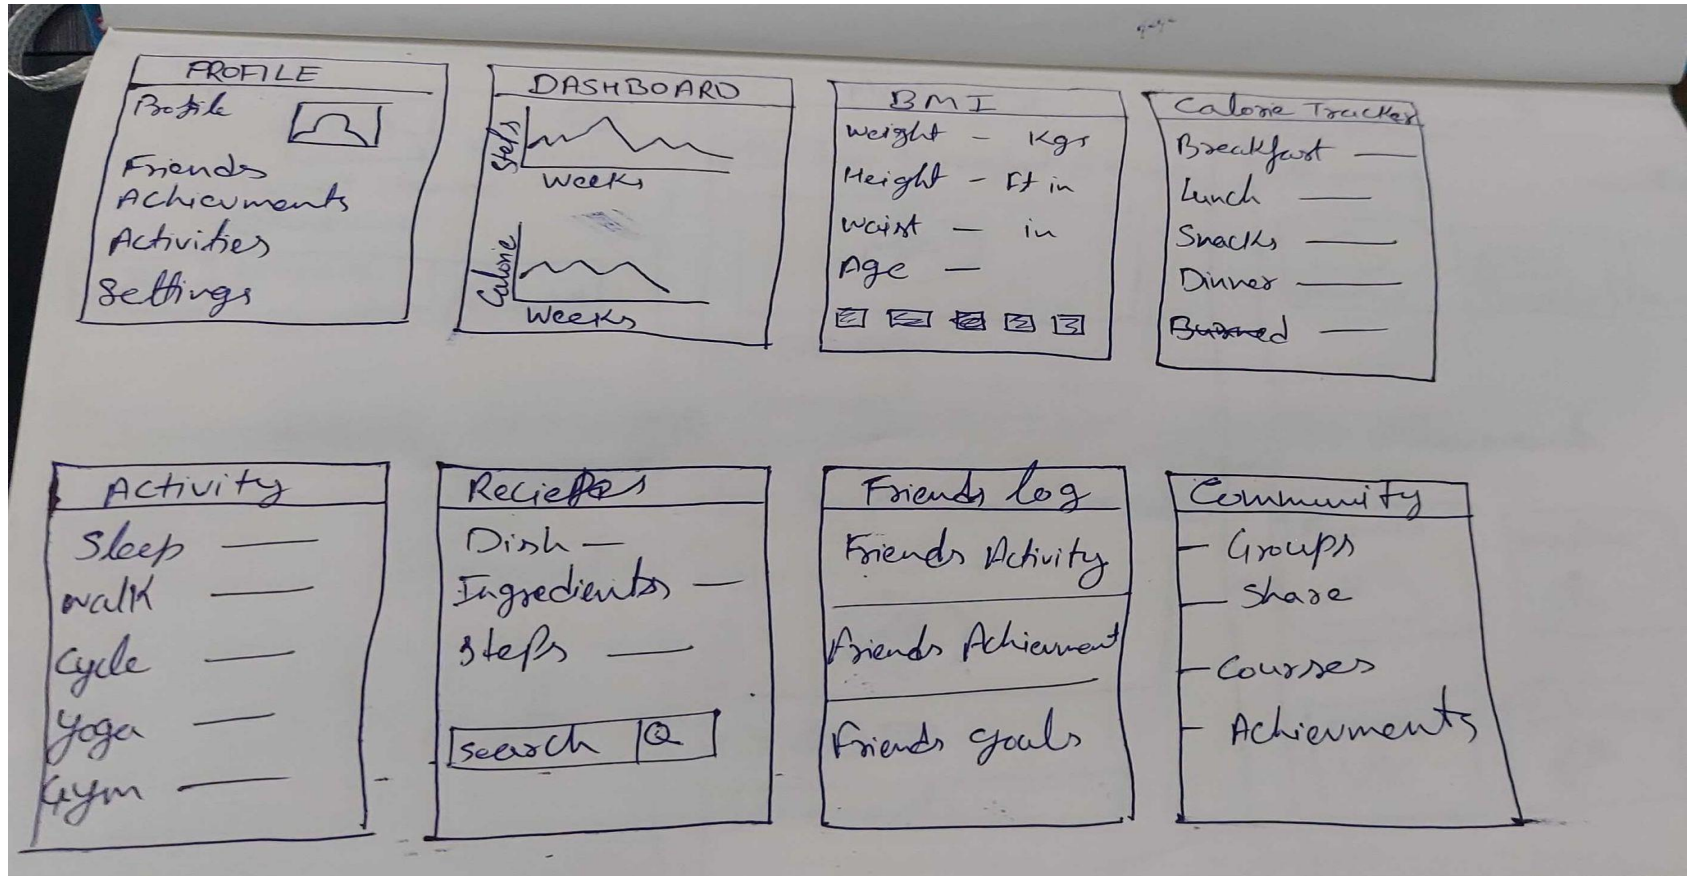 PROFILE
Profile
Friends
Achievments
Activities
Settings
DASHBOARD
Steps
Weeks
Calorie
Weeks
BMI
Weight - Kgs
Height - Ft in
Waist - in
Age -
Calorie Tracker
Breakfast
Lunch
Snacks
Dinner
Burned
Activity
Sleep
Walk
Cycle
Yoga
Gym
Reciepes
Dish -
Ingredients -
Steps
Search
Friends log
Friends Activity
Friends Achievment
Friends goals
Community
- Groups
- Share
- Courses
- Achievments